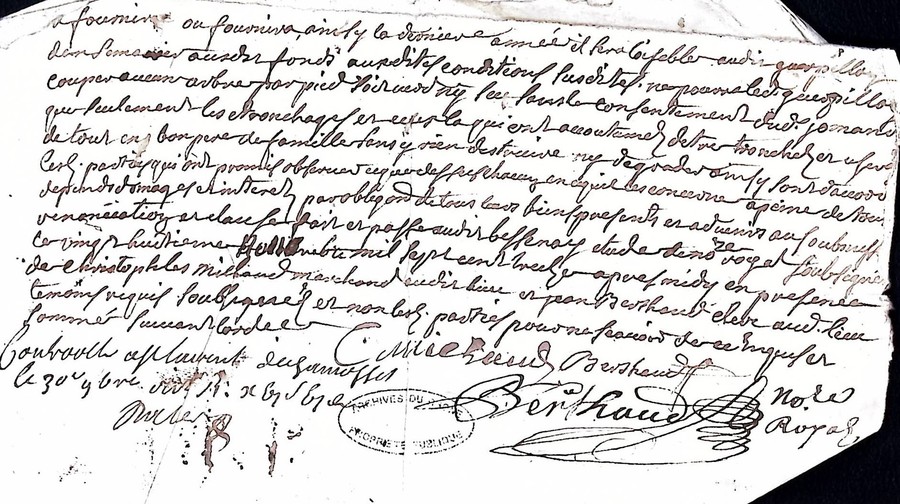 a fournir ou fournira, ainsy la derniere année il sera loisible audit guerpillon
dansemancer ausdit fonds ausdites conditions susdites. ne pourra led. guerpillon
couper aucun arbre par pied soit ny sec sans le consentement dud. Jomard
que seulement les etronchages et ceux la qui ont accoutumez detre tronchez et usera
de tout en bon pere de famille sans y rien destruire ny degrader ainsy sont daccord
lesd. parties qui ont promis observer ce que dessus chacun en ce qui les concerne a peine de tous
depends domages et interets par obligaõn de tous leurs biens presents et advenir au soubmiss
renonciation et clause fait et passé audit bessenay etude de noře royal soubsigné
ce vingt huitieme mil sept cent treize apres midy en presence
de Christophle Michaud marchand audit lieu et Jean Berthaud clerc aud. lieu
temoins requis soubsignez et non lesd. parties pour ne scavoir de ce enquis et
sommé suivant lordce
Controollé a St laurent de chamousset
le 30e 9bre
CMichaud Berthaud
Berthaud Nore
Royal
ARCHIVES DU
PROPRIETE PUBLIQUE